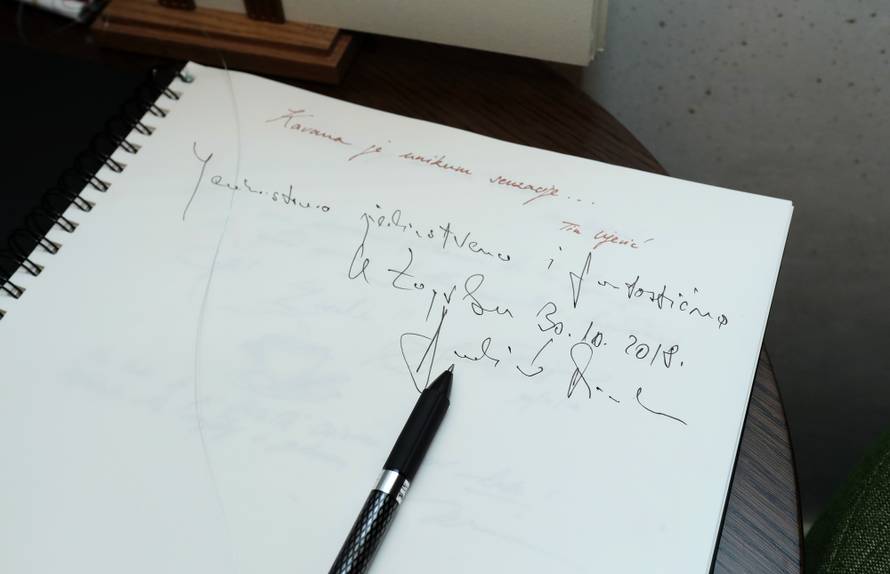 Kavana je unikum senzacije...
Tin Ujević
jedinstveno i fantastično
U Zagrebu 30.10.2018.